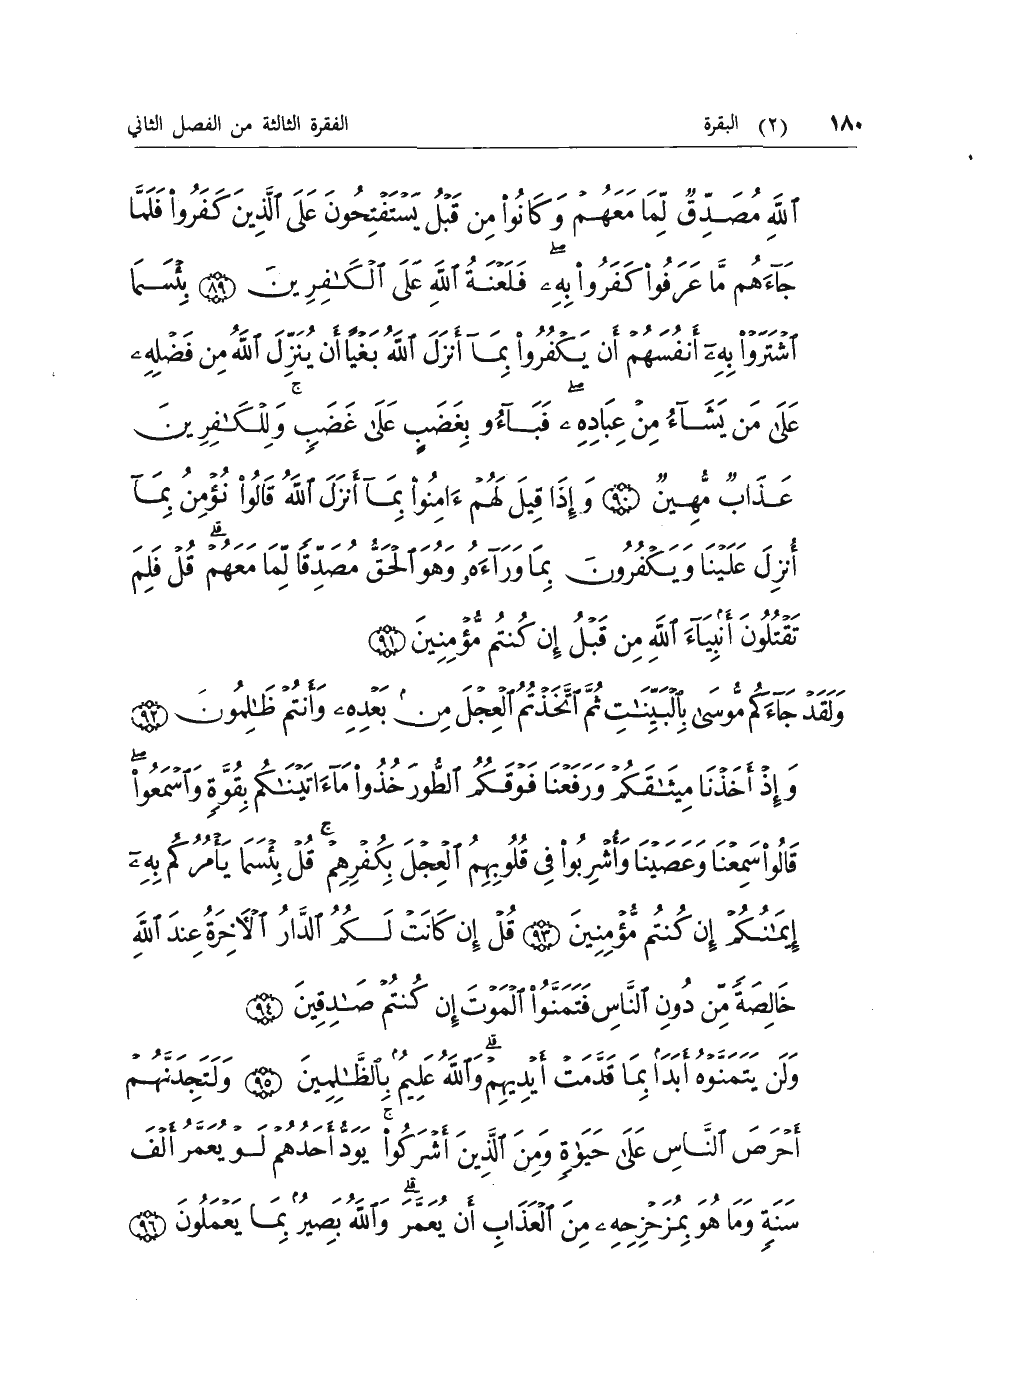 ١٨٠ (٢) البقرة الفقرة الثالثة من الفصل الثاني
ٱللَّهِ مُصَدِّقٌ لِّمَا مَعَهُمْ وَكَانُوا۟ مِن قَبْلُ يَسْتَفْتِحُونَ عَلَى ٱلَّذِينَ كَفَرُوا۟ فَلَمَّا
جَآءَهُم مَّا عَرَفُوا۟ كَفَرُوا۟ بِهِۦۖ فَلَعْنَةُ ٱللَّهِ عَلَى ٱلْكَـٰفِرِينَ ﴿٨٩﴾ بِئْسَمَا
ٱشْتَرَوْا۟ بِهِۦٓ أَنفُسَهُمْ أَن يَكْفُرُوا۟ بِمَآ أَنزَلَ ٱللَّهُ بَغْيًا أَن يُنَزِّلَ ٱللَّهُ مِن فَضْلِهِۦ
عَلَىٰ مَن يَشَآءُ مِنْ عِبَادِهِۦۖ فَبَآءُو بِغَضَبٍ عَلَىٰ غَضَبٍۚ وَلِلْكَـٰفِرِينَ
عَذَابٌ مُّهِينٌ ﴿٩٠﴾ وَإِذَا قِيلَ لَهُمْ ءَامِنُوا۟ بِمَآ أَنزَلَ ٱللَّهُ قَالُوا۟ نُؤْمِنُ بِمَآ
أُنزِلَ عَلَيْنَا وَيَكْفُرُونَ بِمَا وَرَآءَهُۥ وَهُوَ ٱلْحَقُّ مُصَدِّقًا لِّمَا مَعَهُمْۗ قُلْ فَلِمَ
تَقْتُلُونَ أَنۢبِيَآءَ ٱللَّهِ مِن قَبْلُ إِن كُنتُم مُّؤْمِنِينَ ﴿٩١﴾
وَلَقَدْ جَآءَكُم مُّوسَىٰ بِٱلْبَيِّنَـٰتِ ثُمَّ ٱتَّخَذْتُمُ ٱلْعِجْلَ مِنۢ بَعْدِهِۦ وَأَنتُمْ ظَـٰلِمُونَ ﴿٩٢﴾
وَإِذْ أَخَذْنَا مِيثَـٰقَكُمْ وَرَفَعْنَا فَوْقَكُمُ ٱلطُّورَ خُذُوا۟ مَآ ءَاتَيْنَـٰكُم بِقُوَّةٍ وَٱسْمَعُوا۟ۖ
قَالُوا۟ سَمِعْنَا وَعَصَيْنَا وَأُشْرِبُوا۟ فِى قُلُوبِهِمُ ٱلْعِجْلَ بِكُفْرِهِمْۚ قُلْ بِئْسَمَا يَأْمُرُكُم بِهِۦٓ
إِيمَـٰنُكُمْ إِن كُنتُم مُّؤْمِنِينَ ﴿٩٣﴾ قُلْ إِن كَانَتْ لَكُمُ ٱلدَّارُ ٱلْـَٔاخِرَةُ عِندَ ٱللَّهِ
خَالِصَةً مِّن دُونِ ٱلنَّاسِ فَتَمَنَّوُا۟ ٱلْمَوْتَ إِن كُنتُمْ صَـٰدِقِينَ ﴿٩٤﴾
وَلَن يَتَمَنَّوْهُ أَبَدًۢا بِمَا قَدَّمَتْ أَيْدِيهِمْۗ وَٱللَّهُ عَلِيمٌۢ بِٱلظَّـٰلِمِينَ ﴿٩٥﴾ وَلَتَجِدَنَّهُمْ
أَحْرَصَ ٱلنَّاسِ عَلَىٰ حَيَوٰةٍ وَمِنَ ٱلَّذِينَ أَشْرَكُوا۟ۚ يَوَدُّ أَحَدُهُمْ لَوْ يُعَمَّرُ أَلْفَ
سَنَةٍ وَمَا هُوَ بِمُزَحْزِحِهِۦ مِنَ ٱلْعَذَابِ أَن يُعَمَّرَۗ وَٱللَّهُ بَصِيرٌۢ بِمَا يَعْمَلُونَ ﴿٩٦﴾